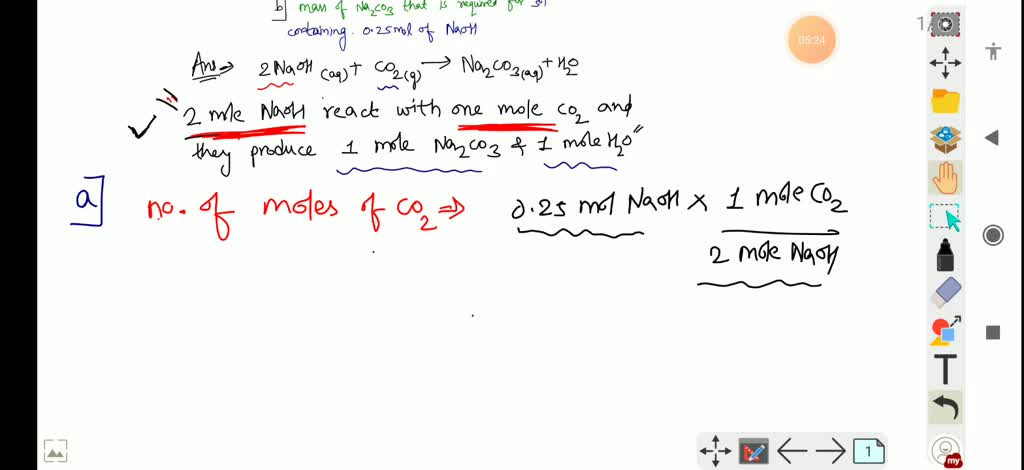 b] mass of Na2CO3 that is required for sol
containing 0.25mol of NaOH
Ans→ 2NaOH (aq) + CO2(g) → Na2CO3(aq) + H2O
2 mole NaOH react with one mole CO2 and
they produce 1 mole Na2CO3 & 1 mole H2O"
a] no. of moles of CO2 ⇒ 0.25 mol NaOH × 1 mole CO2
2 mole NaOH
05:24
1/
T
1
my